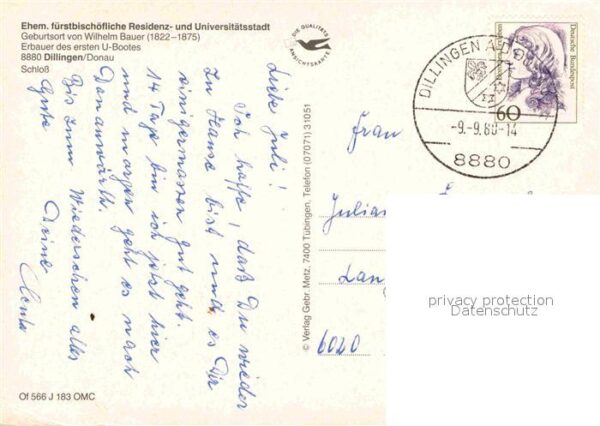 Ehem. fürstbischöfliche Residenz- und Universitätsstadt
Geburtsort von Wilhelm Bauer (1822–1875)
Erbauer des ersten U-Bootes
8880 Dillingen/Donau
Schloß
DIE QUALITÄTS
ANSICHTSKARTE
Deutsche Bundespost
60
DILLINGEN A.D.
-9.-9.88-14
8880
Liebe Juli!
Ich hoffe, daß Du wieder
zu Hause bist und es Dir
einigermassen gut geht.
14 Tage bin ich jetzt hier
und morgen geht es nach
Donauwörth.
Bis zum Wiedersehen alles
Gute Deine
© Verlag Gebr. Metz, 7400 Tübingen, Telefon (07071) 31051
Frau
Julian
Lan
6020
privacy protection
Datenschutz
Of 566 J 183 OMC